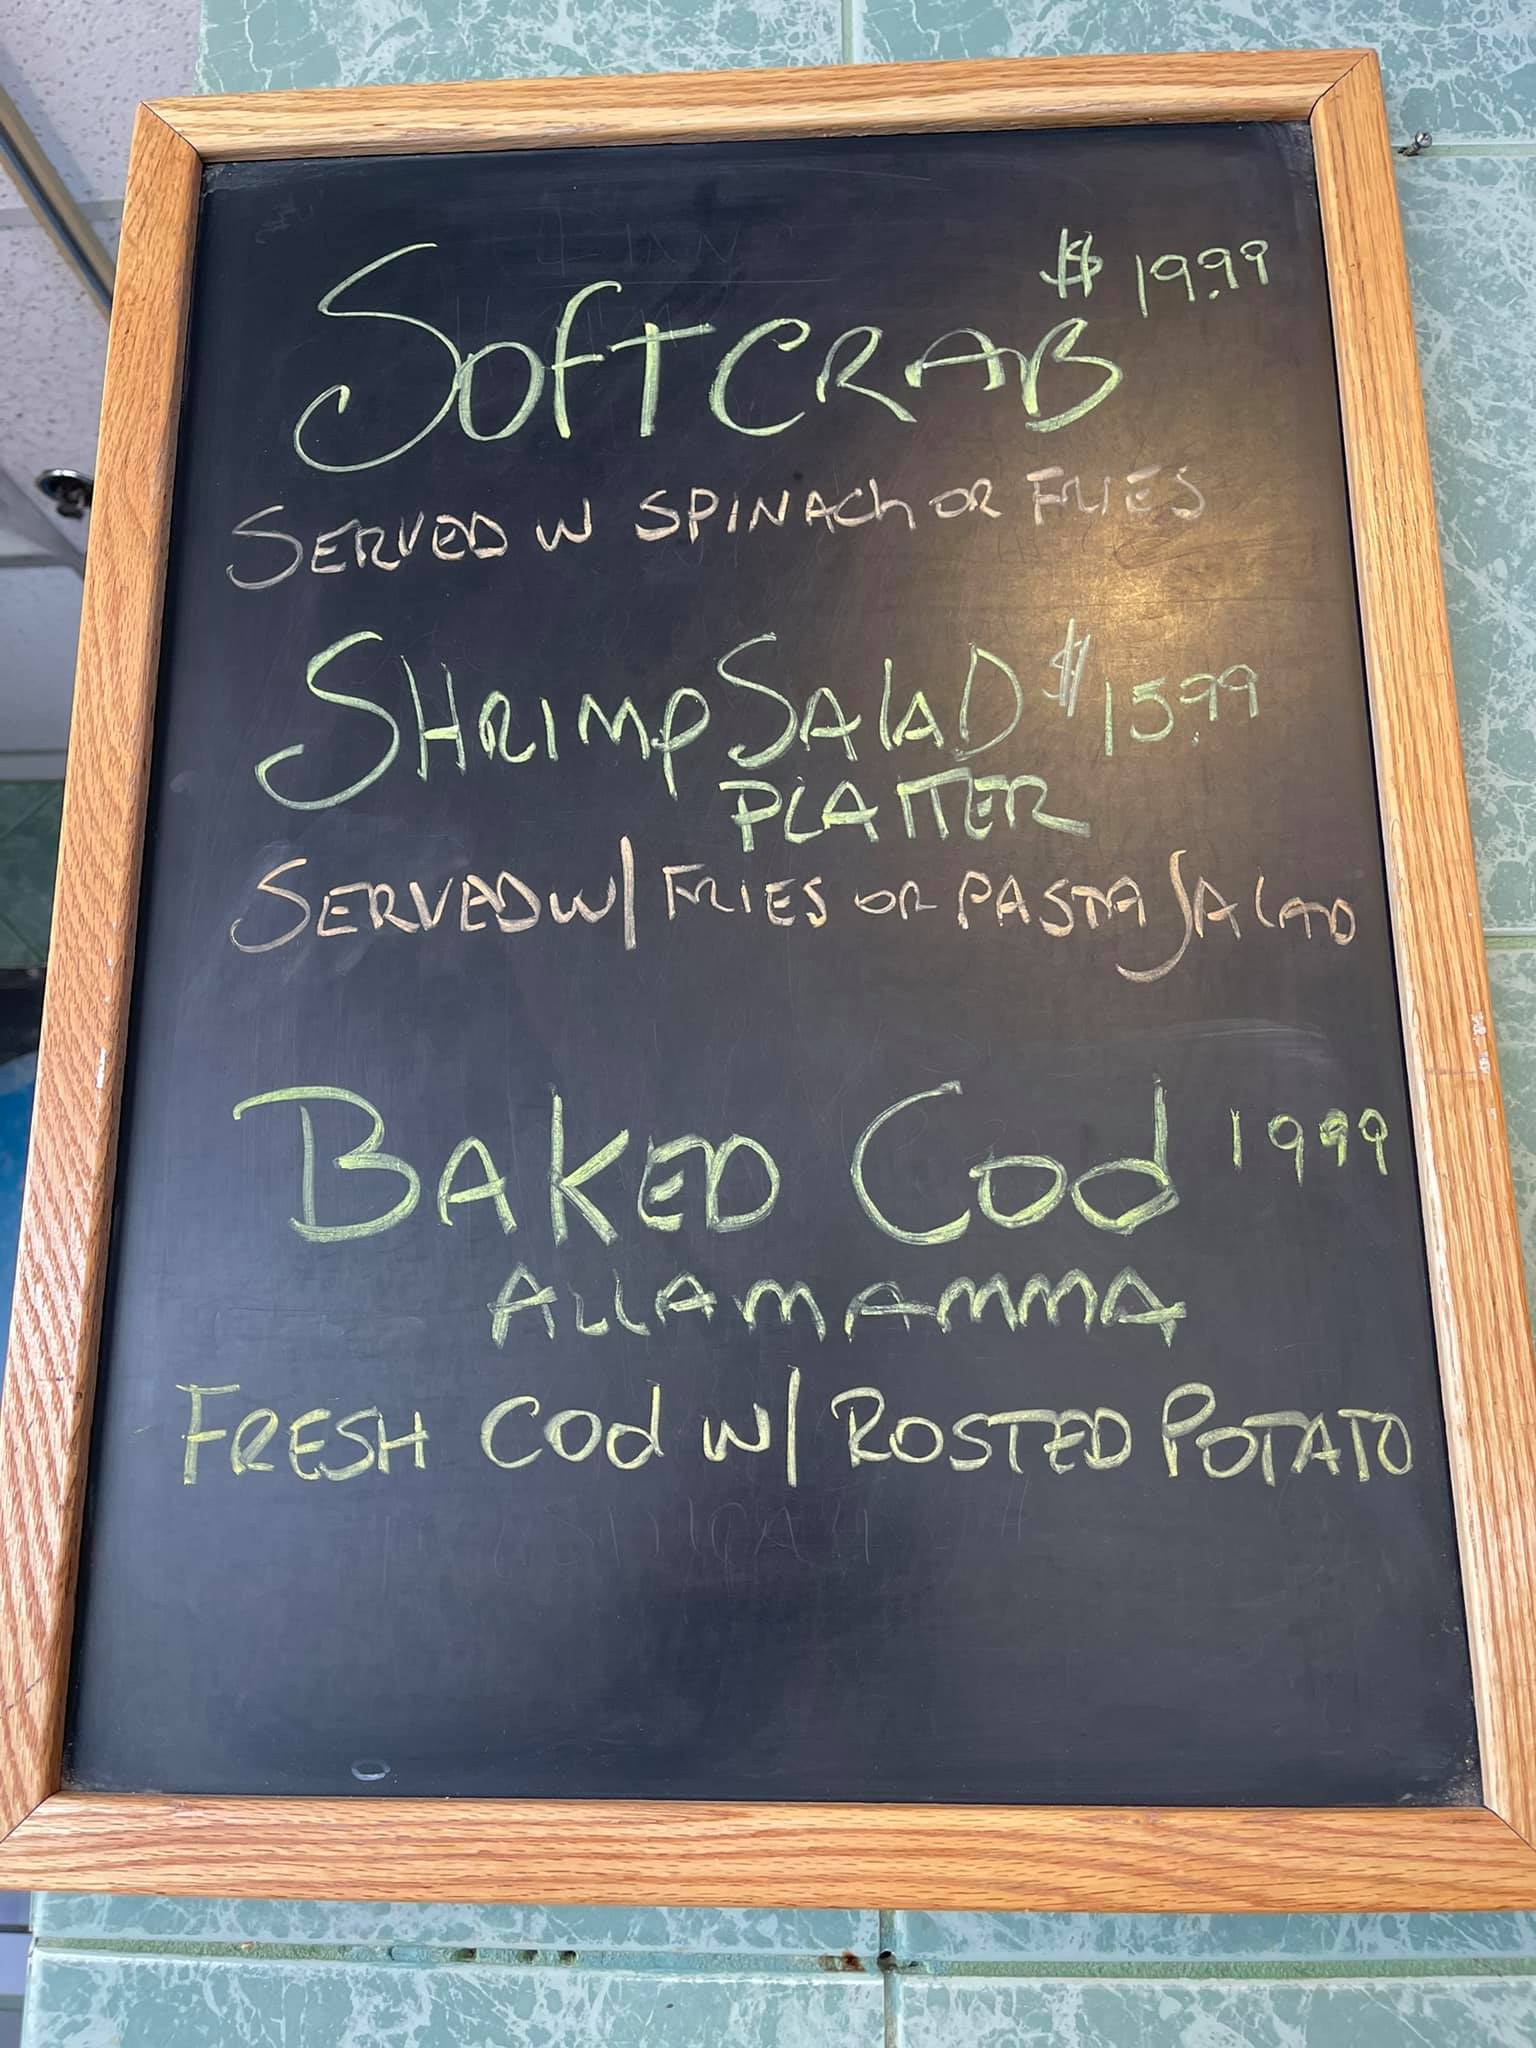 $ 19.99
SOFT CRAB
SERVED W SPINACH OR FRIES
SHRIMP SALAD $ 15.99
PLATTER
SERVED W/ FRIES OR PASTA SALAD
BAKED COD 19 99
ALLA MAMMA
FRESH COD W/ ROSTED POTATO